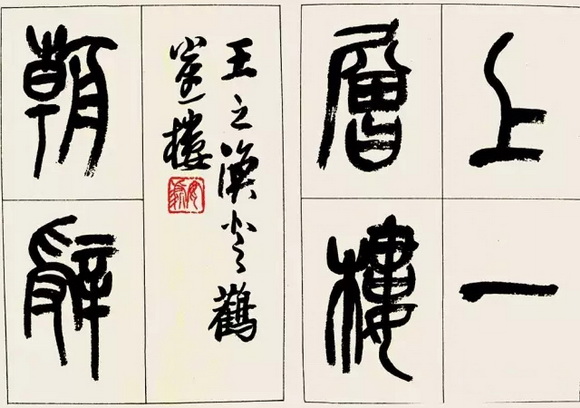 上一
層樓
王之渙登鸛
雀樓
朝辭